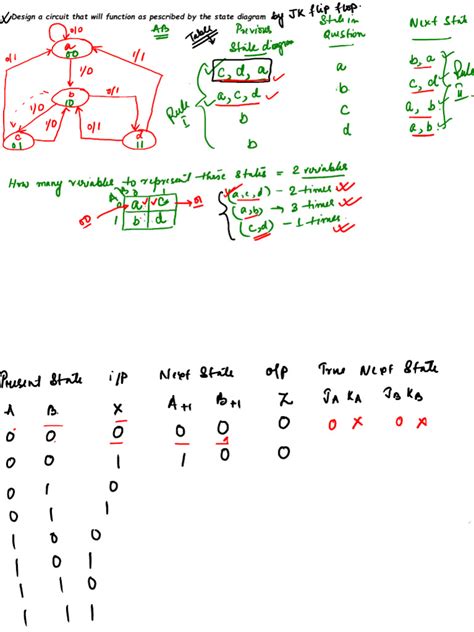 Design a circuit that will function as pescribed by the state diagram by JK flip flop.
AB Table Previous State diagram State in Question Next State
0/0
a
00
0/1 1/0 1/1
c, d, a a b, a
b
10
0/1
a, c, d b c, d
1/0 1/0 0/1
b c a, b
c
01
d
11
b d a, b
Rule I
Rule II
How many variables to represent these states = 2 variables
(a,c,d) - 2 times
(a,b) → 3 times
(c,d) - 1 times
A B 0 1
0 a c
1 b d
00 01
Present State i/p Next State o/p True Next State
A B X A+1 B+1 Z JA KA JB KB
0 0 0 0 0 0 0 X 0 X
0 0 1 1 0 0
0 1 0
0 1 1
1 0 0
1 0 1
1 1 0
1 1 1